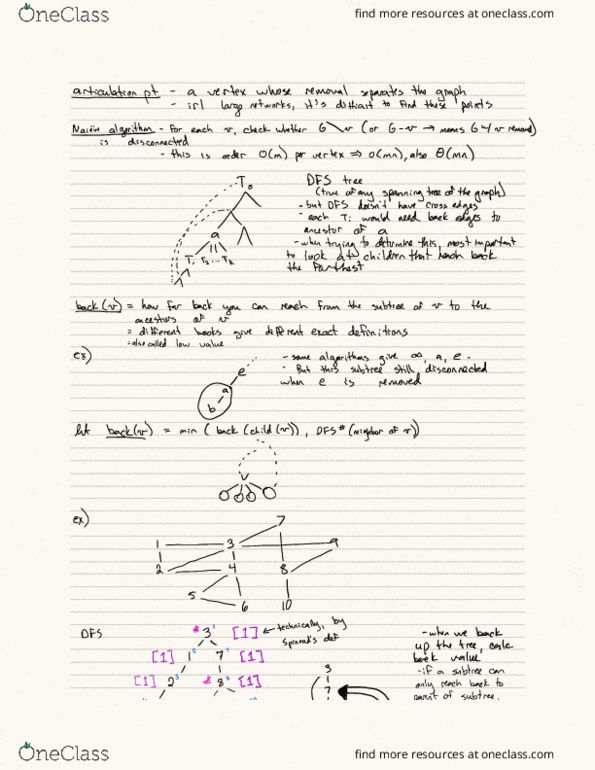 OneClass
find more resources at oneclass.com
articulation pt - a vertex whose removal separates the graph
- irl large networks, it's difficult to find these points
Naiive algorithm - For each v, check whether G\v (or G-v → means G w/ v removed)
is disconnected
- this is order O(m) per vertex ⇒ O(mn), also Θ(mn)
T₀
a
T₁ T₂ ... Tₖ
DFS tree
(true of any spanning tree of the graph)
- but DFS doesn't have cross edges
- each Tᵢ would need back edges to
ancestor of a
- when trying to determine this, most important
to look at children that reach back
the farthest
back(v) = how far back you can reach from the subtree of v to the
ancestors of v
= different books give different exact definitions
= also called low value
ex)
e
a
b
- some algorithms give ∞, a, e.
- But this subtree still disconnected
when e is removed
let back(v) = min ( back (child(v)), DFS# (neighbor of v))
v
ex)
7
1 3 9
2 4 8
5 6 10
DFS
* 3¹ [1]
← technically, by
def
[1] 1 7 [1]
[1] 2 * 8 [1]
3
7
- when we back
up the tree, calc
back value
- if a subtree can
only reach back to
parent of subtree,
OneClass
find more resources at oneclass.com